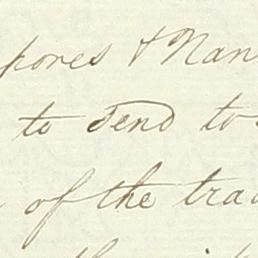 pores & Nan
to send to
of the trad
the